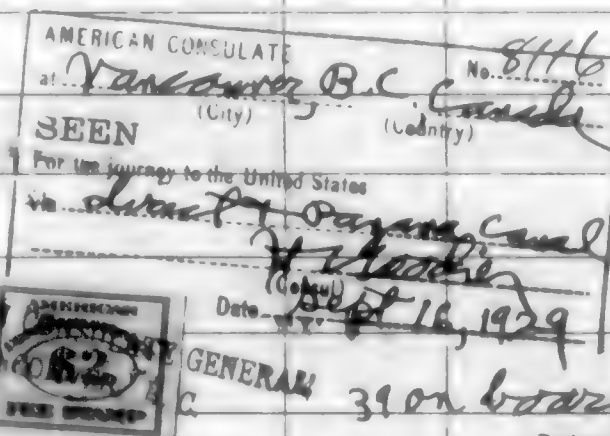 AMERICAN CONSULATE
at Vancouver, B.C. Canada No. 8446
(City) (Country)
SEEN
For the journey to the United States
via Panama Canal
(Consul)
Date Sept 18, 1929
AMERICAN
GENERAL
$2
FEE STAMP
39 on board